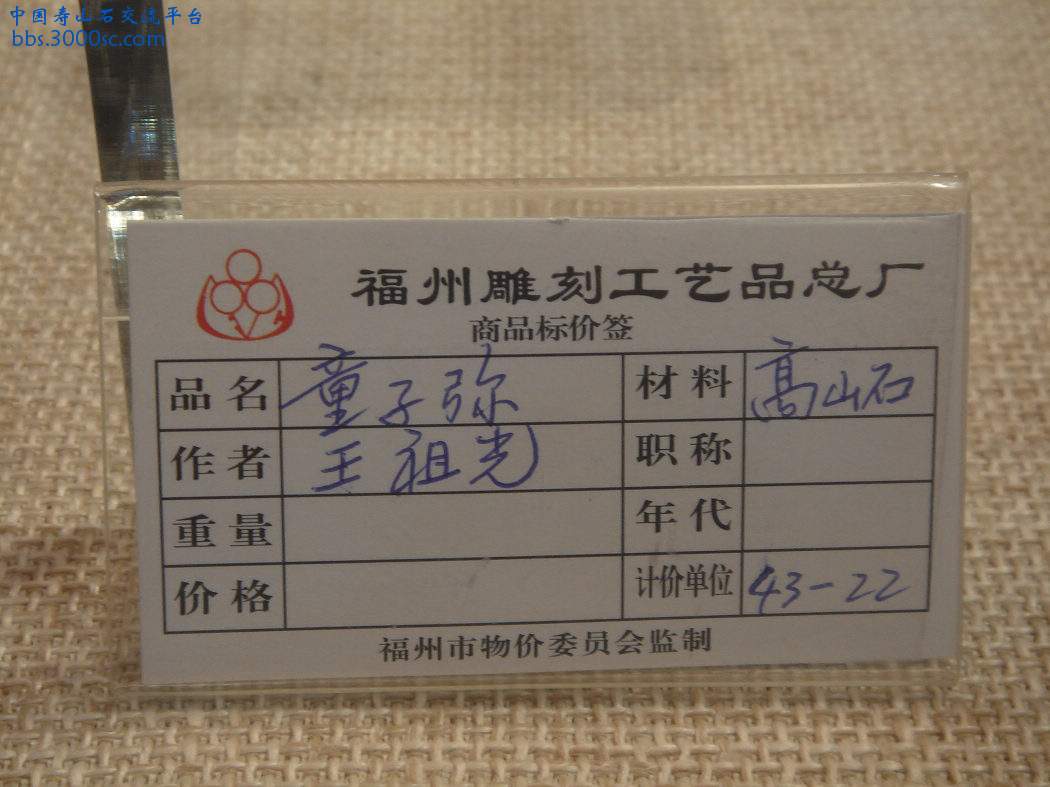 中国寿山石交流平台
bbs.3000sc.com
福州雕刻工艺品总厂
商品标价签
品名 童子弥 材料 高山石
作者 王祖光 职称
重量 年代
价格 计价单位 43-22
福州市物价委员会监制